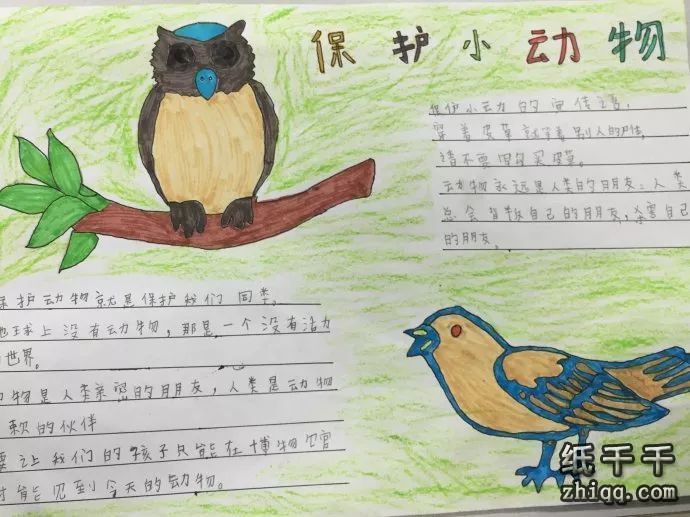 保护小动物
保护小动的宣传语,
穿着皮草就穿着别人的尸体,
请不要 买皮草。
动物永远是人类的朋友,人类
总会 自己的朋友,杀害自己
的朋友。
保护动物就是保护我们同类。
地球上没有动物,那是一个没有活力
世界。
物是人类亲密的朋友,人类是动物
赖的伙伴
让我们的孩子只能在博物馆
才能见到今天的动物。
纸千千
zhiqq.com